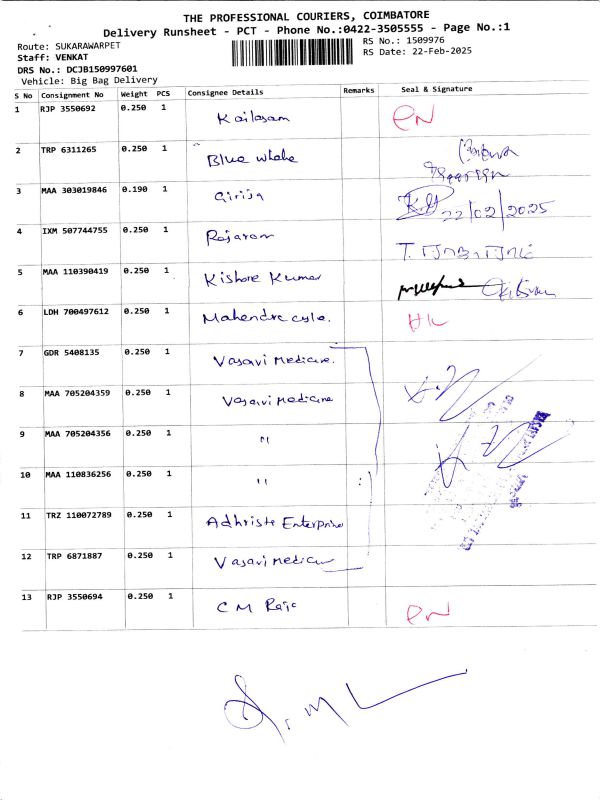 THE PROFESSIONAL COURIERS, COIMBATORE
Delivery Runsheet - PCT - Phone No.:0422-3505555 - Page No.:1
Route: SUKARAWARPET
RS No.: 1509976
Staff: VENKAT
RS Date: 22-Feb-2025
DRS No.: DCJB150997601
Vehicle: Big Bag Delivery
S No Consignment No Weight PCS Consignee Details Remarks Seal & Signature
1 RJP 3550692 0.250 1 Kailasam
2 TRP 6311265 0.250 1 Blue whale
3 MAA 303019846 0.190 1 Girija 22/02/2025
4 IXM 507744755 0.250 1 Rajaram
5 MAA 110390419 0.250 1 Kishore Kumar
6 LDH 700497612 0.250 1 Mahendra cycle.
7 GDR 5408135 0.250 1 Vasavi Medicine.
8 MAA 705204359 0.250 1 Vasavi Medicine
9 MAA 705204356 0.250 1 "
10 MAA 110836256 0.250 1 "
11 TRZ 110072789 0.250 1 Adhriste Enterprise
12 TRP 6871887 0.250 1 Vasavi Medicine
13 RJP 3550694 0.250 1 C M Raja